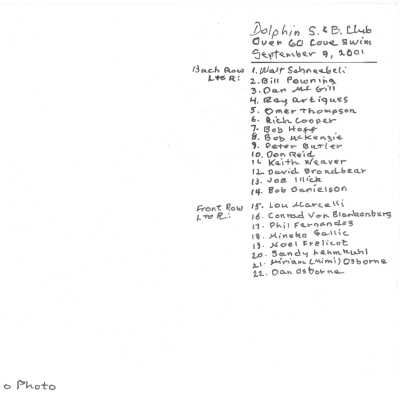 Dolphin S. & B. Club
Over 60 Cove Swim
September 9, 2001
Back Row
L to R:
1. Walt Schneebeli
2. Bill Powning
3. Dan Mc Gill
4. Ray Artigues
5. Omer Thompson
6. Rich Cooper
7. Bob Hoff
8. Bob McKenzie
9. Peter Butler
10. Don Reid
11. Keith Weaver
12. David Broadbear
13. Joe Illick
14. Bob Danielson
Front Row
L to R:
15. Lou Marcelli
16. Conrad Von Blankenburg
17. Phil Fernandez
18. Mineko Gallic
19. Noel
20. Sandy Lehmkuhl
21. Miriam (Mimi) Osborne
22. Dan Osborne
o Photo